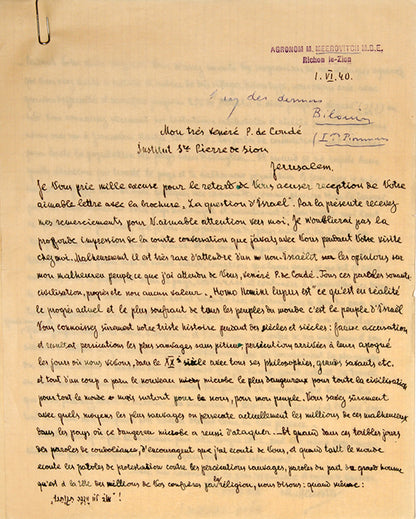 AGRONOM M. MEEROVITCH M.D.E.
Richon le-Zion
1. VI. 40.
des derniers
Biluim
Mon très vénéré P. de Condé
Institut Ste Pierre de Sion
Jerusalem.
Je Vous prie mille excuse pour le retard de Vous acuser reception de Votre
aimable lettre avec la brochure „La question d'Israel". Par la présente recevez
mes remerciements pour V. aimable attention vers moi. Je n'oublierai pas la
profonde impression de la courte conversation que j'avais avec Vous pendant Votre visite
chez moi. Malheureusement il est très rare d'attendre d'un non Israélit sur les opinions sur
mon malheureux peuple ce que j'ai attendu de Vous, vénéré P. de Condé. Tous ces paroles sonants:
civilisation, progrès etc non aucun valeur. „Homo Homini lupus est" ce qu'est en réalité
le progrès actuel et le plus soufrant de tous les peuples du monde c'est le peuple d'Israel
Vous connaissez sûrement votre triste histoire pendant des siècles et siècles: fausse accusation
et resultat persécutions les plus sauvages sans pitié, persécution arrivées à leurs apogué
les jours où nous vivons, dans le XXs siècle avec tous ses philosophies, grands savants etc.
et tout d'un coup a paru le nouveau microbe le plus dangereux pour toute la civilisation
pour tout le monde mais surtout pour nous, pour mon peuple. Vous savez sûrement
avec quels moyens les plus sauvages on persecute actuellement les millions de ces malheureux
dans les pays où ce dangereux microbe a reussi d'ataquer. Et quand dans ces terribles jours
des paroles de condoléance, d'encouragent que j'ai écouté de Vous, et quand tout le monde
ecoute les paroles de protestation contre les persécutions sauvages, paroles du grand homme
qu'est à la tête des millions de Vos confrères par religion, nous disons: quand même: